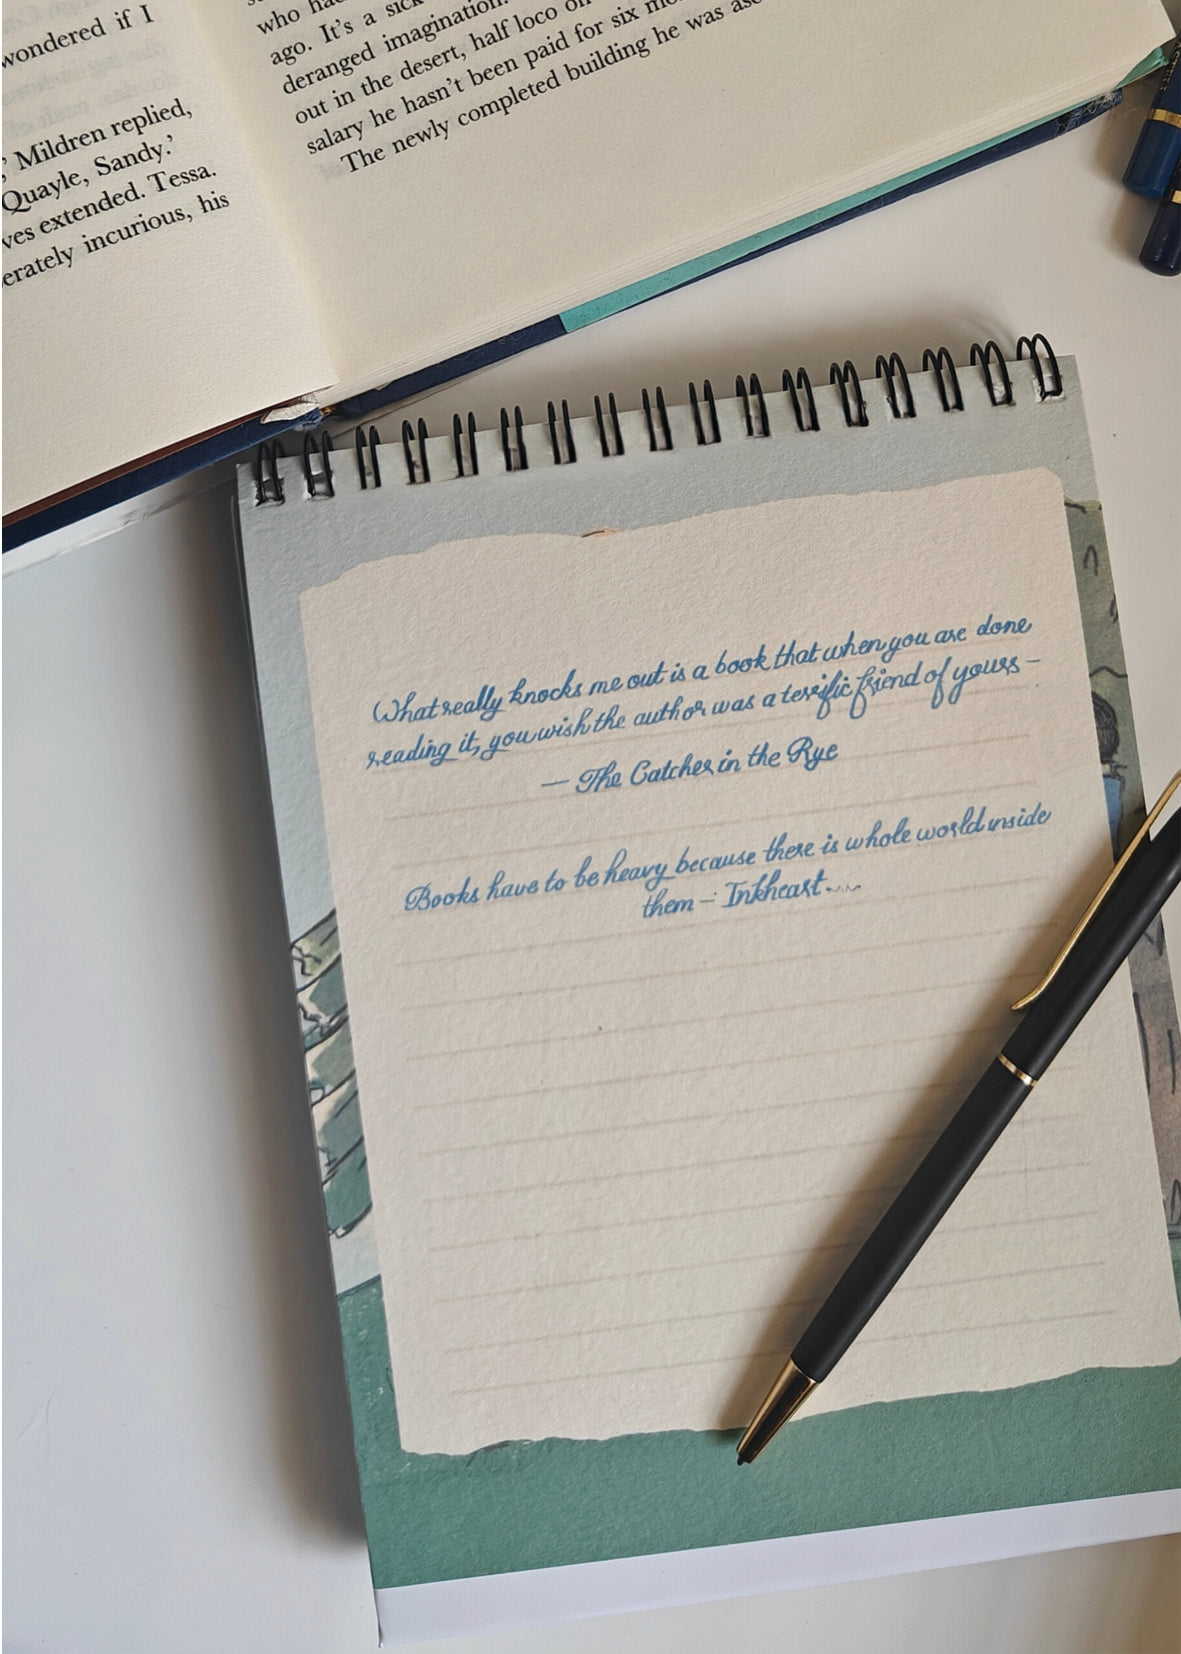 wondered if I
,' Mildren replied,
Quayle, Sandy.'
ves extended. Tessa.
erately incurious, his
who had
ago. It's a sick
deranged imagination.
out in the desert, half loco on
salary he hasn't been paid for six
The newly completed building he was
What really knocks me out is a book that when you are done
reading it, you wish the author was a terrific friend of yours –
— The Catcher in the Rye
Books have to be heavy because there is whole world inside
them – Inkheart....